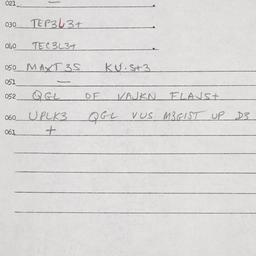 021 —
030 TEP3L3+
040 TEC3L3+
050 MAXT3S KU·S+3
051 —
052 QGL OF VAJKN FLAJS+
060 UPLK3 QGL VUS M3GIST UP D3
061 +